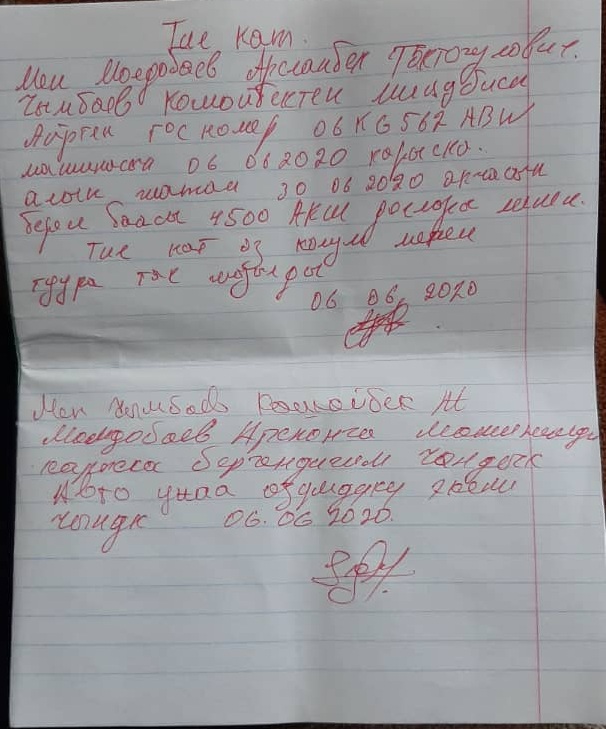 Тил кат.
Мен Молдобаев Арсланбек Токтогулович.
Чымбаев Комойбектен мицубиси
Айрген гос номер 06 KG 562 ABW
машинасы 06 06 2020 карыска.
алып жатам 30 06 2020 акчасын
берем баасы 4500 АКШ доллары менен.
Тил кат оз колум менен
туура так жазылды
06 06, 2020
Мен Чымбаев Комойбек Ж
Молдобаев Арсконга машинамды
карыска бергендигим чындык
Авто унаа озумдуку экени
чындк 06.06.2020.